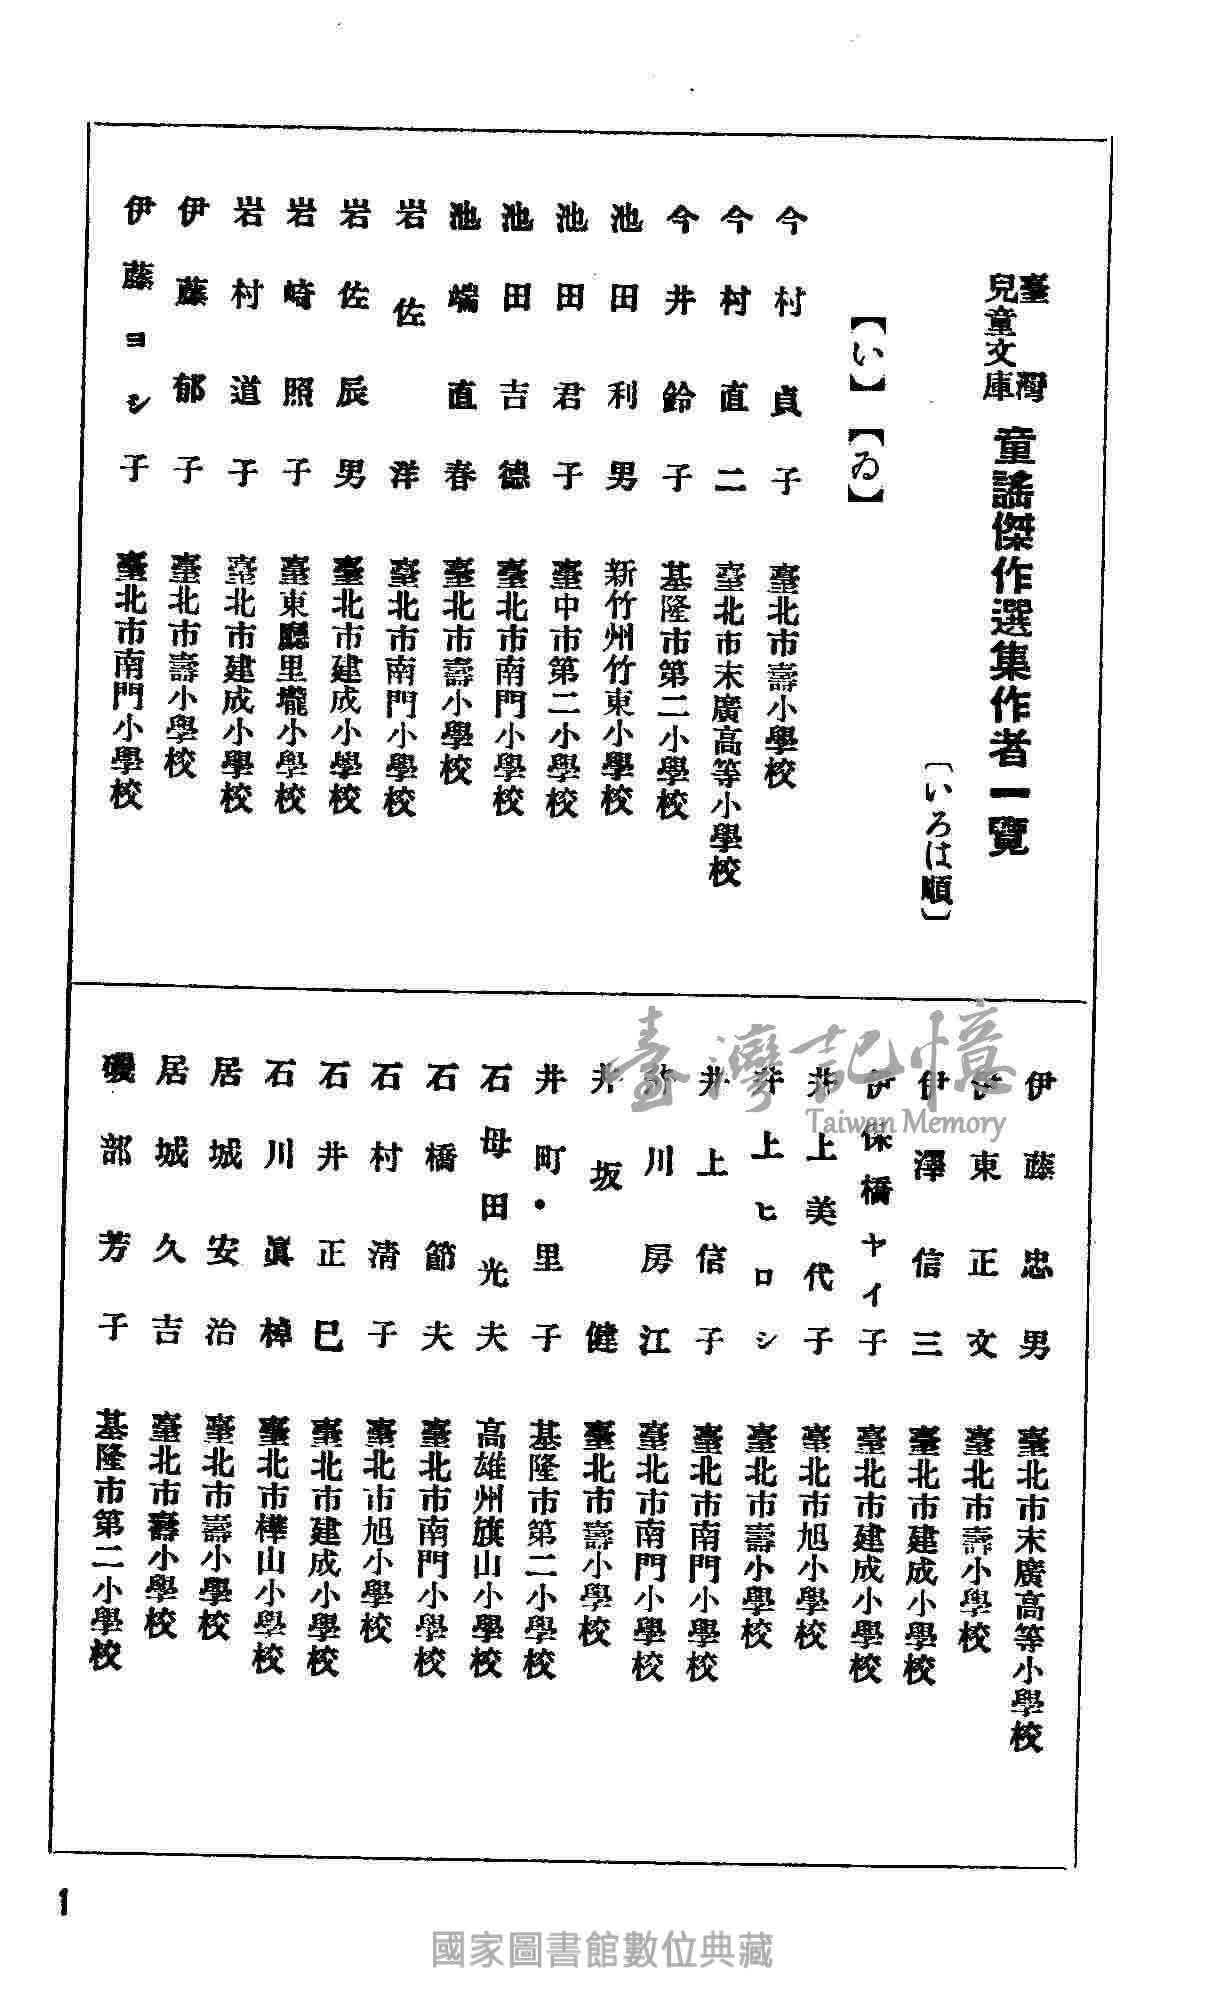 臺灣
兒童文庫
童謠傑作選集作者一覽
〔いろは順〕
【い】【ゐ】
今村貞子 臺北市壽小學校
今村直二 臺北市末廣高等小學校
今井鈴子 基隆市第二小學校
池田利男 新竹州竹東小學校
池田君子 臺中市第二小學校
池田吉德 臺北市南門小學校
池端直春 臺北市壽小學校
岩佐洋 臺北市南門小學校
岩佐辰男 臺北市建成小學校
岩崎照子 臺東廳里壠小學校
岩村道子 臺北市建成小學校
伊藤郁子 臺北市壽小學校
伊藤ヨシ子 臺北市南門小學校
伊藤忠男 臺北市末廣高等小學校
伊東正文 臺北市壽小學校
伊澤信三 臺北市建成小學校
伊保橋ヤイ子 臺北市建成小學校
井上美代子 臺北市旭小學校
井上ヒロシ 臺北市壽小學校
井上信子 臺北市南門小學校
川房江 臺北市南門小學校
井坂健 臺北市壽小學校
井町・里子 基隆市第二小學校
石母田光夫 高雄州旗山小學校
石橋節夫 臺北市南門小學校
石村清子 臺北市旭小學校
石井正巳 臺北市建成小學校
石川眞棹 臺北市樺山小學校
居城安治 臺北市壽小學校
居城久吉 臺北市壽小學校
磯部芳子 基隆市第二小學校
1
臺灣記憶
Taiwan Memory
國家圖書館數位典藏